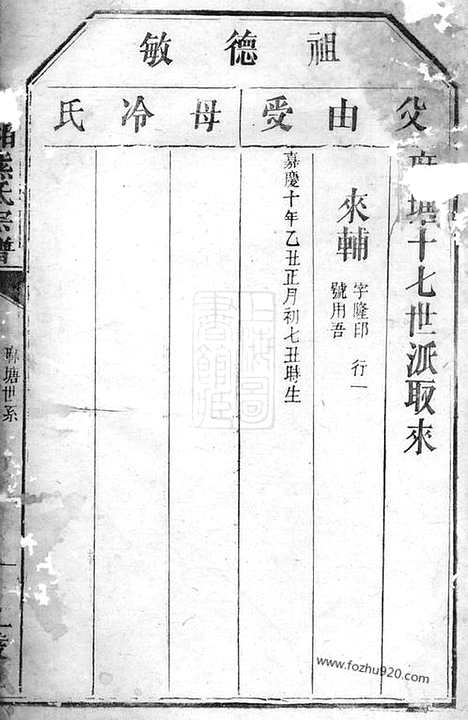 祖德敏
父由受母冷氏
塘十七世派取來
來輔 字隆印 行一
號用吾
嘉慶十年乙丑正月初七丑時生
氏宗譜
聯塘世系
一
上海圖書館藏
www.fozhu920.com